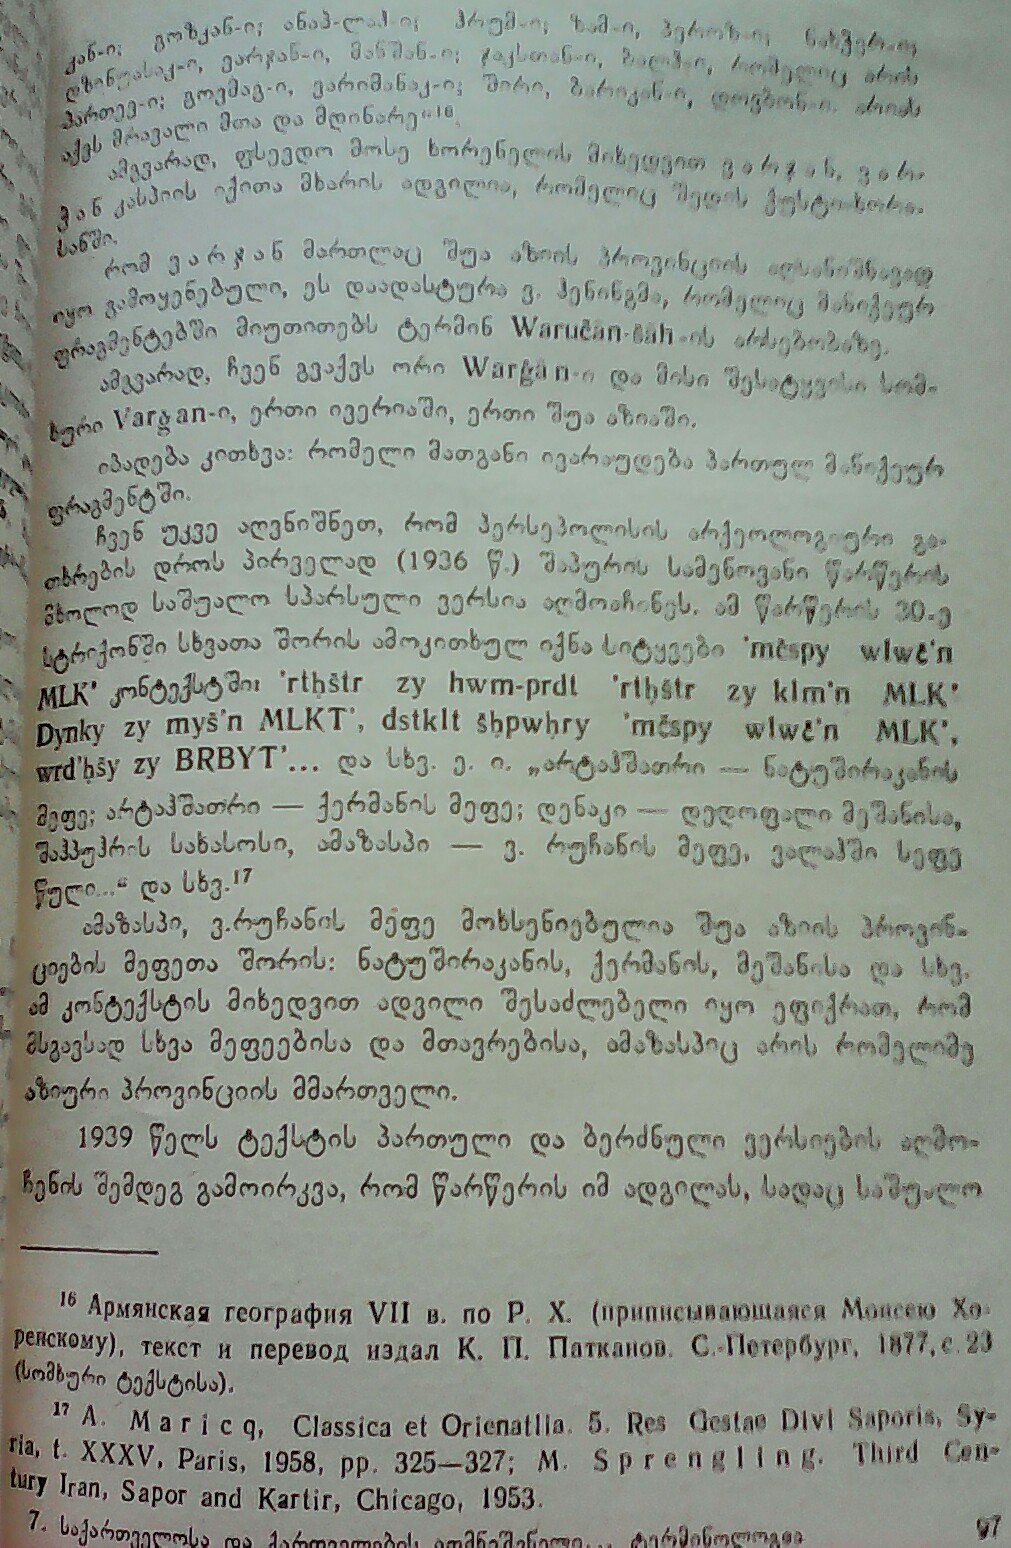 კან-ი; გოზკან-ი; ანაპ-ლაჰ-ი; ჰრუმ-ი; ზამ-ი, პეროზ-ი;
დზინუასაკ-ი, ვარჯან-ი, მანშან-ი; გაკსთან-ი, ბალჰ-ი, რომელიც არის
პართევ-ი; გოვმაგ-ი, ვარიმანაკ-ი; შირი, ბარიკან-ი, დოვბონ-ი. არიას
აქვს მრავალი მთა და მდინარე“¹⁶.
ამგვარად, ფსევდო მოსე ხორენელის მიხედვით ვ ა რ ჯ ა ნ, ვ ა რ-
ჭ ა ნ კასპიის იქითა მხარის ადგილია, რომელიც შედის ქუსტი-ხორა-
სანში.
რომ ვ ა რ ჯ ა ნ მართლაც შუა აზიის პროვინციის აღსანიშნავად
იყო გამოყენებული, ეს დაადასტურა ვ. ჰენინგმა, რომელიც მანიქეურ
ფრაგმენტებში მიუთითებს ტერმინ Waručān-šāh-ის არსებობაზე.
ამგვარად, ჩვენ გვაქვს ორი Warǧān-ი და მისი შესატყვისი სომ-
ხური Vargan-ი, ერთი ივერიაში, ერთი შუა აზიაში.
იბადება კითხვა: რომელი მათგანი ივარაუდება პართულ მანიქეურ
ფრაგმენტში.
ჩვენ უკვე აღვნიშნეთ, რომ პერსეპოლისის არქეოლოგიური გა-
თხრების დროს პირველად (1936 წ.) შაპურის სამენოვანი წარწერის
მხოლოდ საშუალო სპარსული ვერსია აღმოაჩინეს. ამ წარწერის 30-ე
სტრიქონში სხვათა შორის ამოკითხულ იქნა სიტყვები 'mčspy wlwč'n
MLK' კონტექსტში: 'rtḥštr zy hwm-prdt 'rtḥštr zy klm'n MLK'
Dynky zy myš'n MLKT', dstklt šḥpwḥry 'mčspy wlwč'n MLK',
wrd'ḥšy zy BRBYT'... და სხვ. ე. ი. „არტაჰშათრი — ნატუშირაკანის
მეფე; არტაჰშათრი — ქერმანის მეფე; დენაკი — დედოფალი მეშანისა,
შაჰპუჰრის სახასოსი, ამაზასპი — ვ. რუჩანის მეფე, ვალაჰში სეფე
წული...“ და სხვ.¹⁷
ამაზასპი, ვ.რუჩანის მეფე მოხსენიებულია შუა აზიის პროვინ-
ციების მეფეთა შორის: ნატუშირაკანის, ქერმანის, მეშანისა და სხვ.
ამ კონტექსტის მიხედვით ადვილი შესაძლებელი იყო ეფიქრათ, რომ
მსგავსად სხვა მეფეებისა და მთავრებისა, ამაზასპიც არის რომელიმე
აზიური პროვინციის მმართველი.
1939 წელს ტექსტის პართული და ბერძნული ვერსიების აღმო-
ჩენის შემდეგ გამოირკვა, რომ წარწერის იმ ადგილას, სადაც საშუალო
¹⁶ Армянская география VII в. по Р. Х. (приписывающаяся Моисею Хо-
ренскому), текст и перевод издал К. П. Патканов. С.-Петербург, 1877, с. 23
(სომხური ტექსტისა).
¹⁷ A. M a r i c q, Classica et Orienatlia. 5. Res Gestae Divi Saporis, Sy-
ria, t. XXXV, Paris, 1958, pp. 325—327; M. S p r e n g l i n g. Third Cen-
tury Iran, Sapor and Kartir, Chicago, 1953.
7. საქართველოსა და ქართველების აღმნიშვნელი... ტერმინოლოგია
97